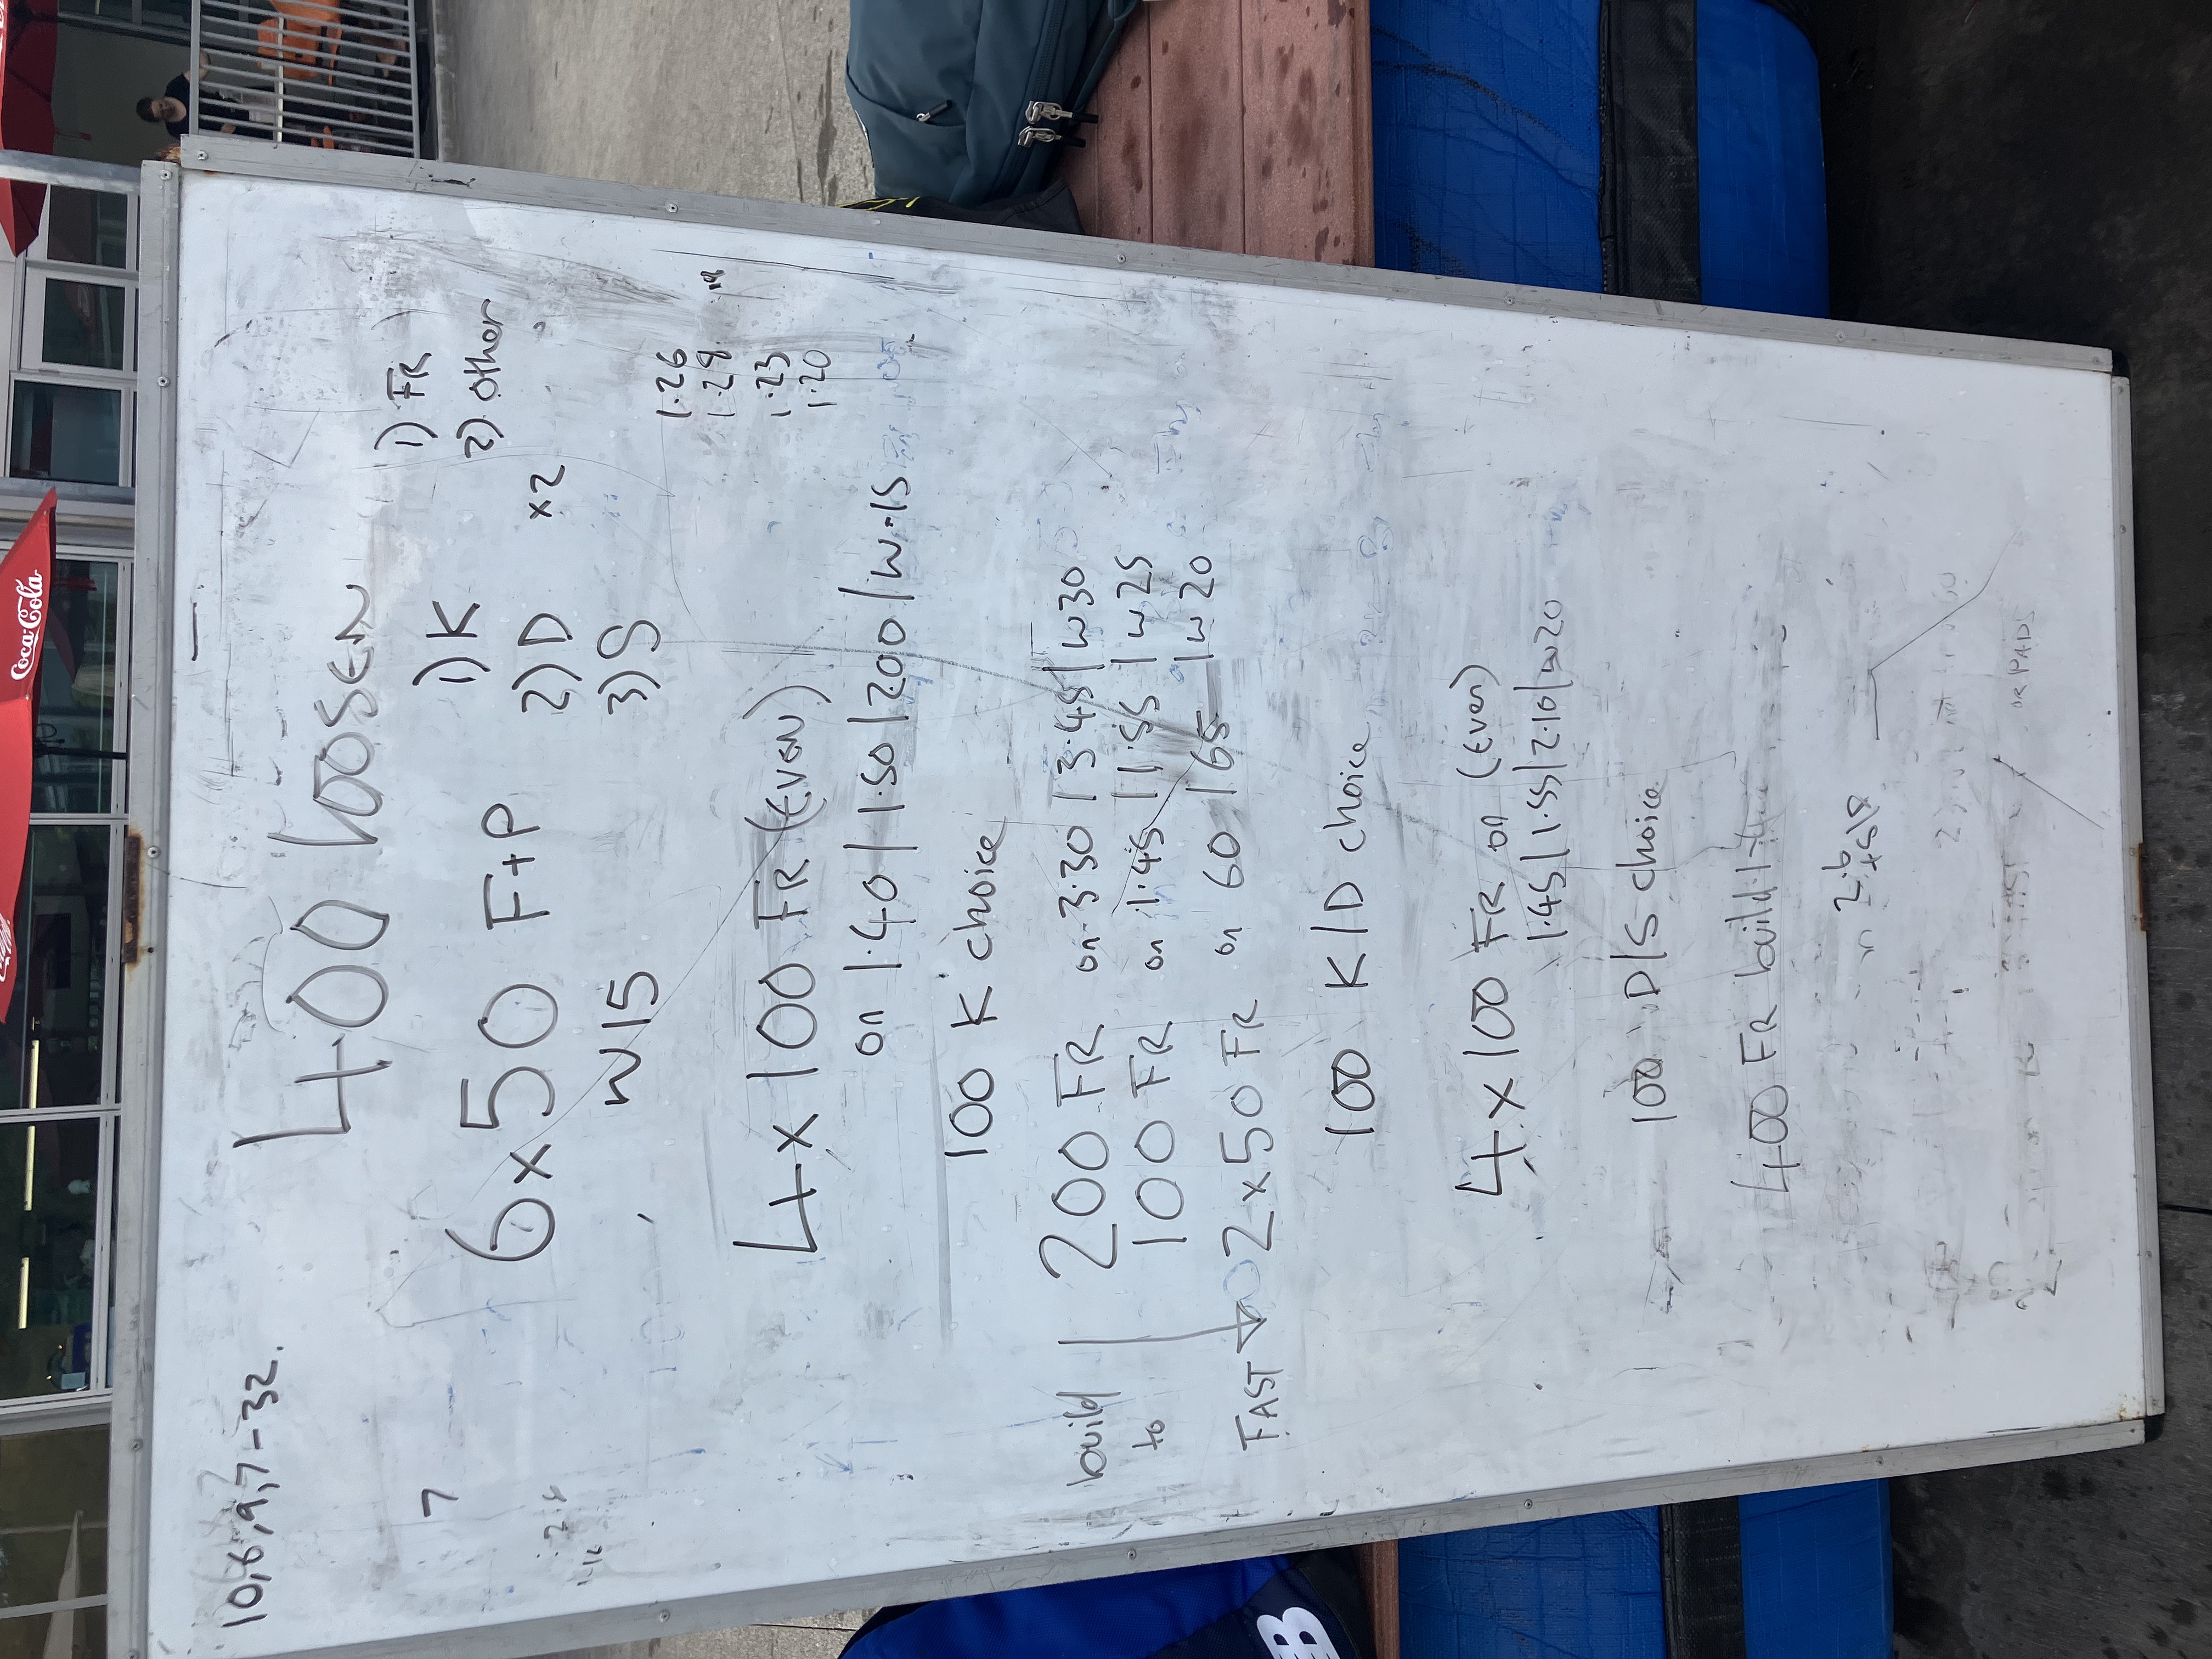 10,6,9,7-32.
400 loosen
1) FR
2) other
7
6x50 F+P
1) K
2) D
3) S
x2
W15
1.26
1.28
1.23
1.20
4x100 FR (Even)
on 1.40/1.50/200/W.15
100 K choice
build to FAST
200 FR on 3.30/3.45/W30
100 FR on 1.45/1.55/W25
2x50 FR on 60/65/W20
100 K/D choice
4x100 FR on (Even)
1.45/1.55/2.10/W20
100 D/S choice
400 FR build
OR PADS
Coca-Cola
B